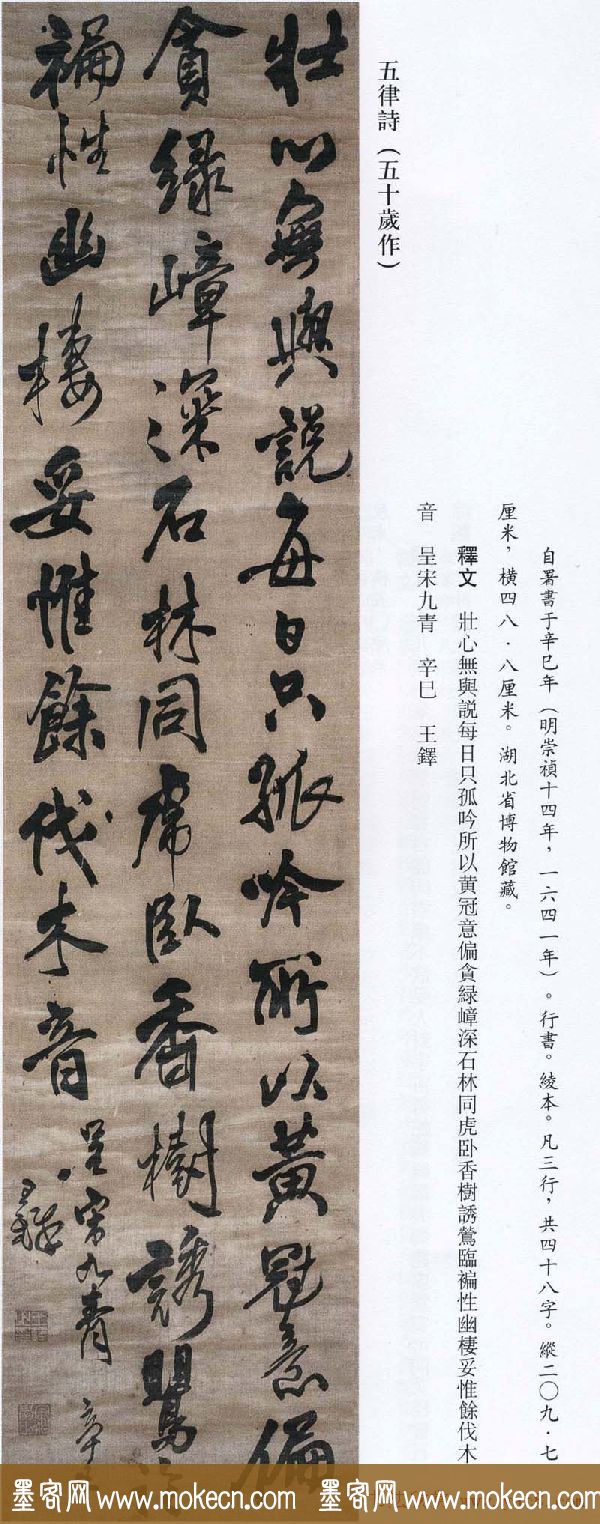 五律詩（五十歲作）
自署書于辛巳年（明崇禎十四年，一六四一年）。行書。綾本。凡三行，共四十八字。縱二〇九·七
厘米，橫四八·八厘米。湖北省博物館藏。
釋文　壯心無與説每日只孤吟所以黄冠意偏貪緑嶂深石林同虎卧香樹誘鶯臨褊性幽棲妥惟餘伐木
音　呈宋九青　辛巳　王鐸
壯心無與説每日只孤吟所以黄冠意偏
貪緑嶂深石林同虎卧香樹誘鶯臨
褊性幽棲妥惟餘伐木音 呈宋九青 辛
王鐸
墨客网 www.mokecn.com 墨客网 www.mokecn.com